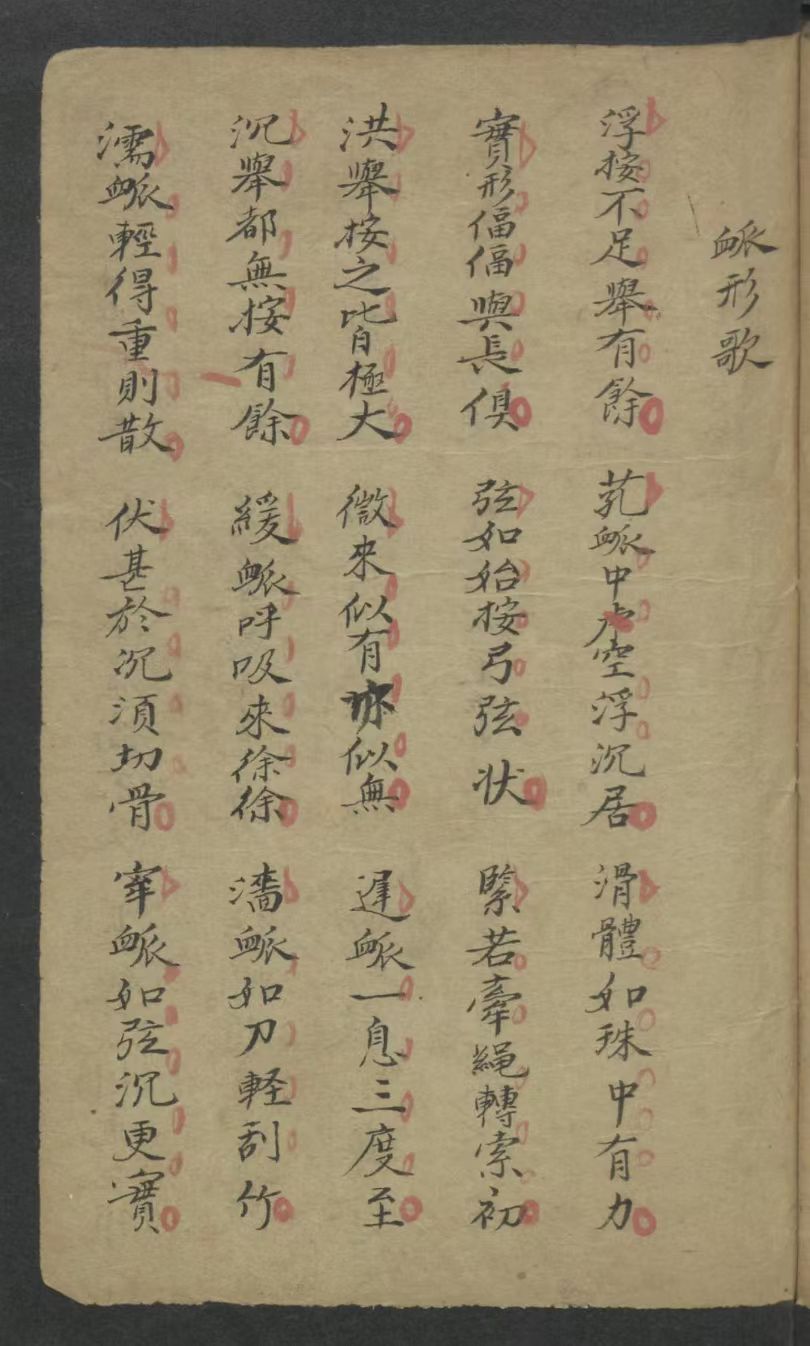 衇形歌
浮按不足舉有餘　芤衇中虚空浮沉居　滑體如珠中有力
實形偪偪與長俱　弦如始按弓弦状　緊若牽繩轉索初
洪舉按之皆極大　微來似有亦似無　遲衇一息三度至
沉舉都無按有餘　緩衇呼吸來徐徐　濇衇如刀軽刮竹
濡衇輕得重則散　伏甚於沉須切骨　牢衇如弦沉更實